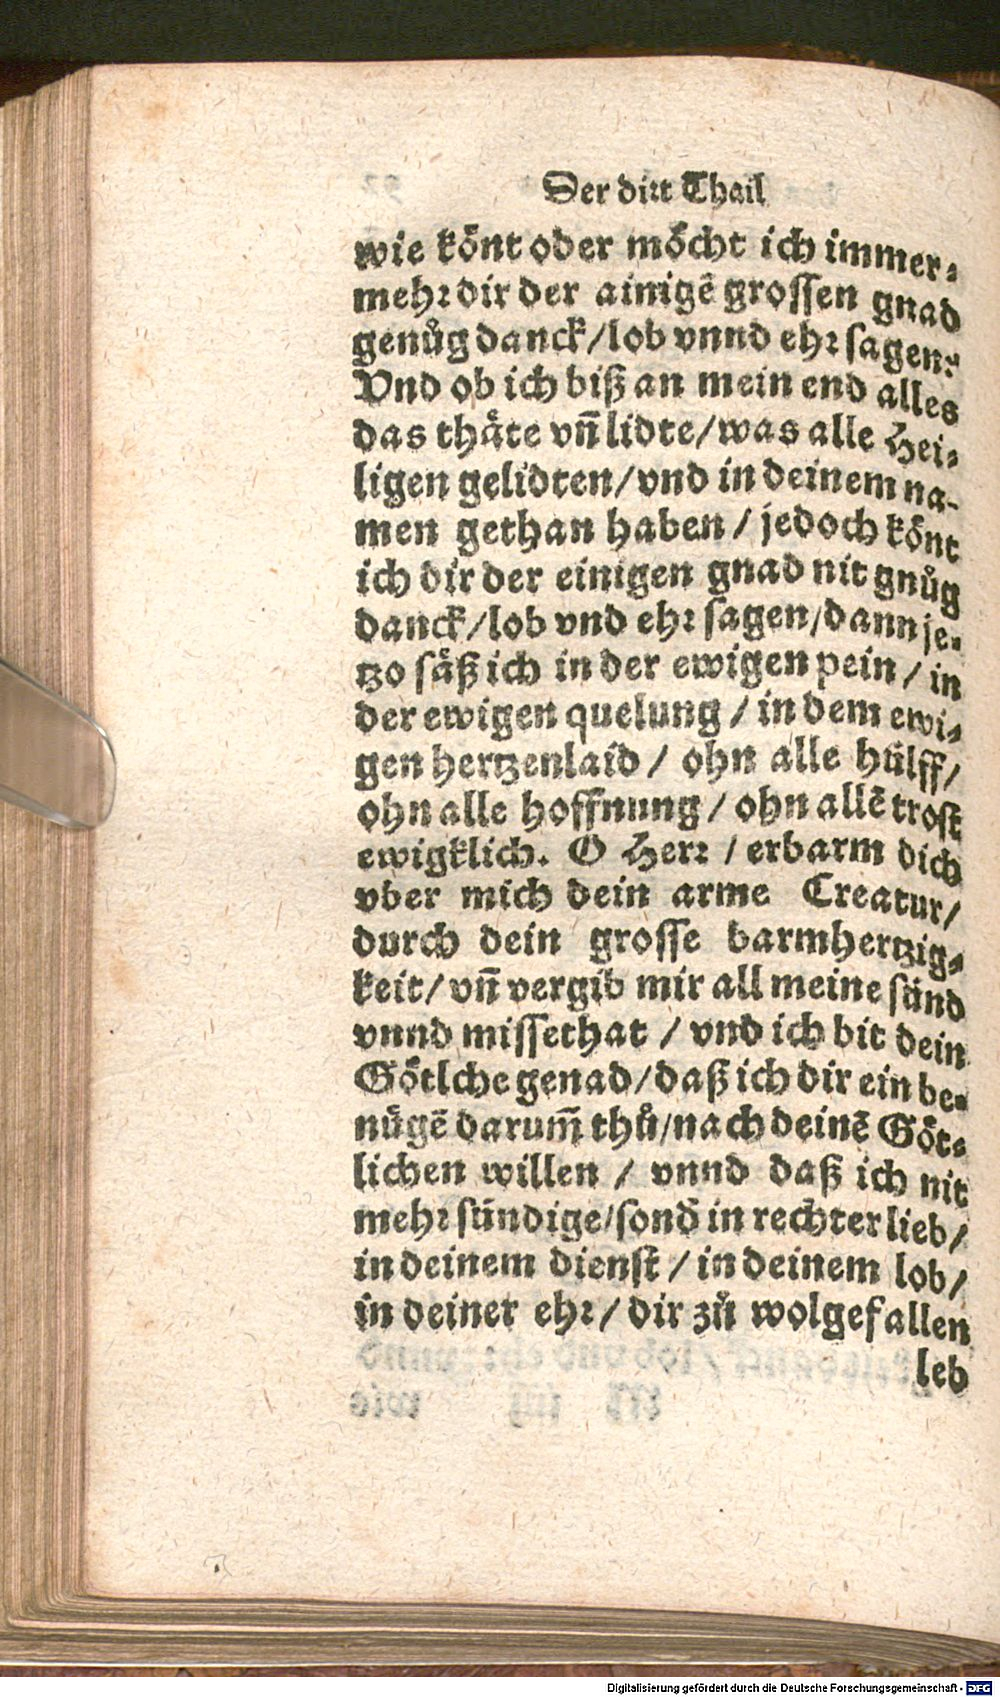 Der dirt Thail
wie köntoder möcht ich immer⸗
mehr dir der ainigē grossen gnad
genůg danck/lob vnnd ehr sagen?
Vnd ob ich biß an mein end alles
das thäte vñ lidte/was alle Hei⸗
ligen gelidten/vnd in deinem na⸗
men gethan haben / jedoch könt
ich dir der einigen gnad nit gnůg
danck/lob vnd ehr sagen/dann je⸗
tzo säß ich in der ewigen pein / in
der ewigen quelung / in dem ewi⸗
gen hertzenlaid / ohn alle hülff/
ohn alle hoffnung / ohn allē trost
ewigklich. O Herr / erbarm dich
vber mich dein arme Creatur/
durch dein grosse barmhertzig⸗
keit/vñ vergib mir all meine sünd
vnnd missethat / vnd ich bit dein
Götlche genad/daß ich dir ein be⸗
nůgē darum̃ thů/nach deinē Göt⸗
lichen willen / vnnd daß ich nit
mehr sündige/sond̄ in rechter lieb/
in deinem dienst / in deinem lob/
in deiner ehr / dir zů wolgefallen
leb
Digitalisierung gefördert durch die Deutsche Forschungsgemeinschaft - DFG